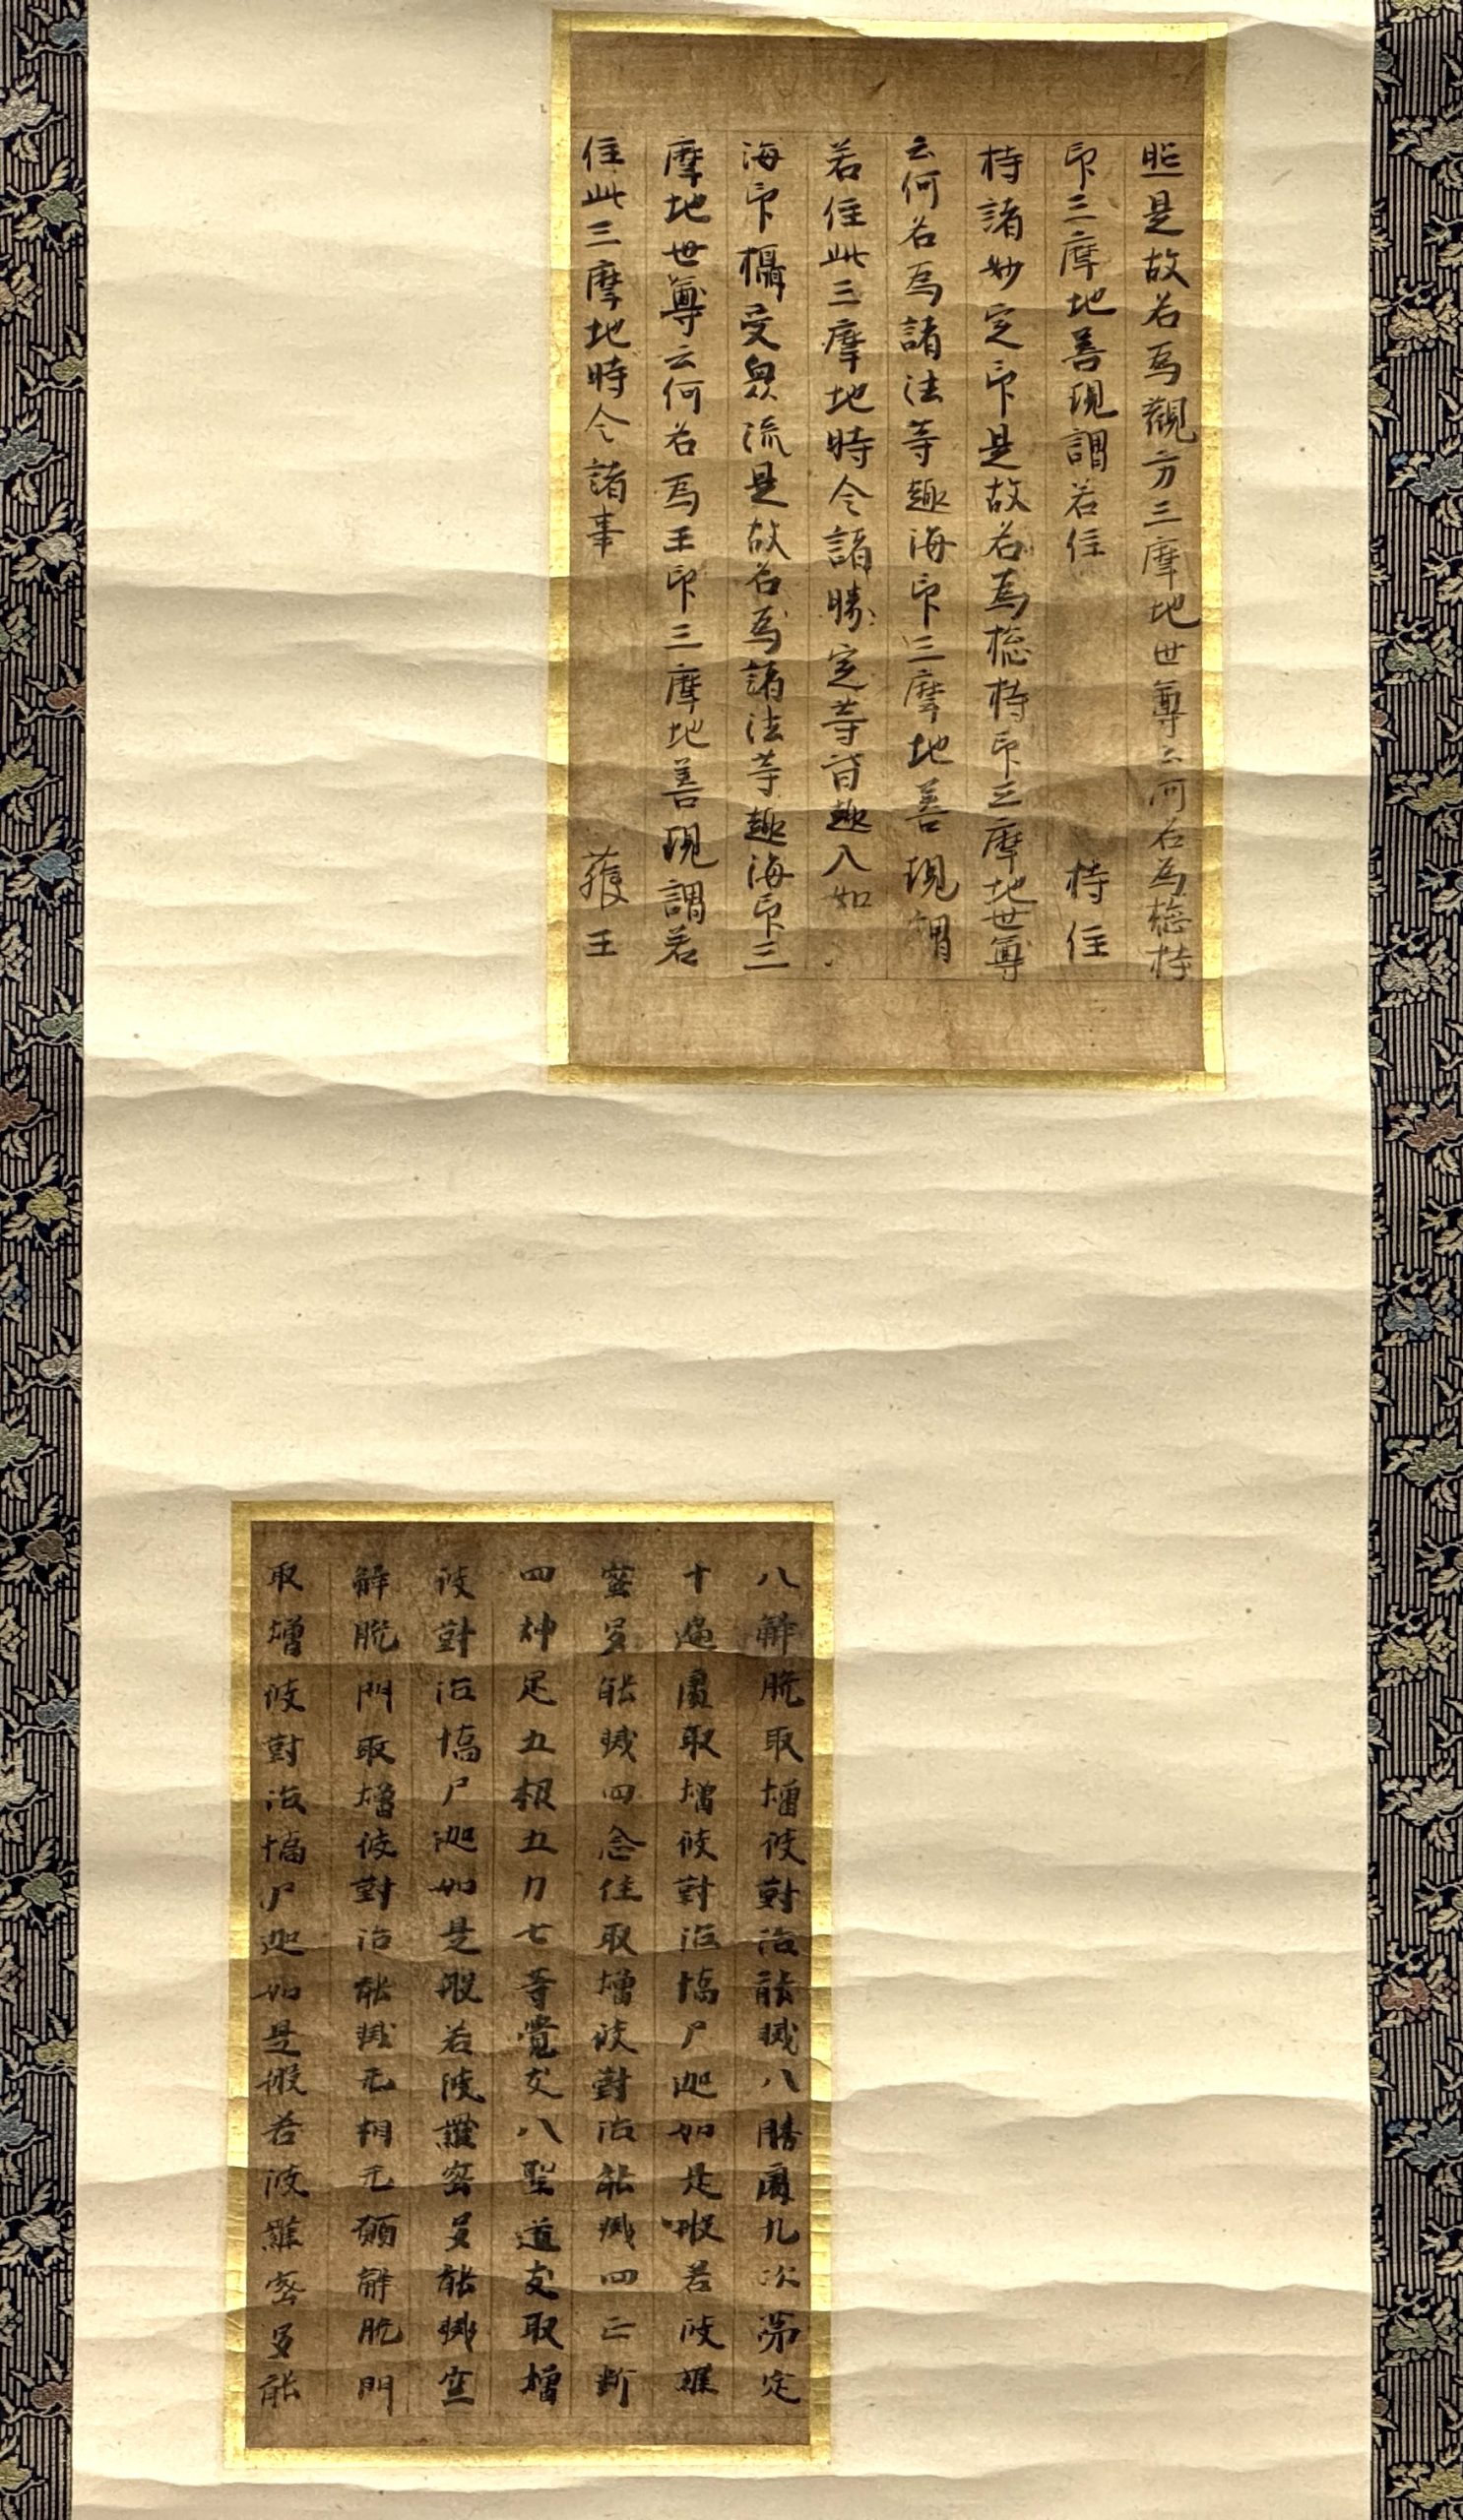 照是故名為觀方三摩地世尊云何名為揔持
印三摩地善現謂若住 持住
持諸妙定印是故名為揔持印三摩地世尊
云何名為諸法等趣海印三摩地善現謂
若住此三摩地時令諸勝定等皆趣入如
海印攝受眾流是故名為諸法等趣海印三
摩地世尊云何名為王印三摩地善現謂若
住此三摩地時令諸事 獲王
八解脫取增彼對治能滅八勝處九次第定
十遍處取增彼對治憍尸迦如是般若波羅
蜜多能滅四念住取增彼對治能滅四正斷
四神足五根五力七等覺支八聖道支取增
彼對治憍尸迦如是般若波羅蜜多能滅空
解脫門取增彼對治能滅无相无願解脫門
取增彼對治憍尸迦如是般若波羅蜜多能